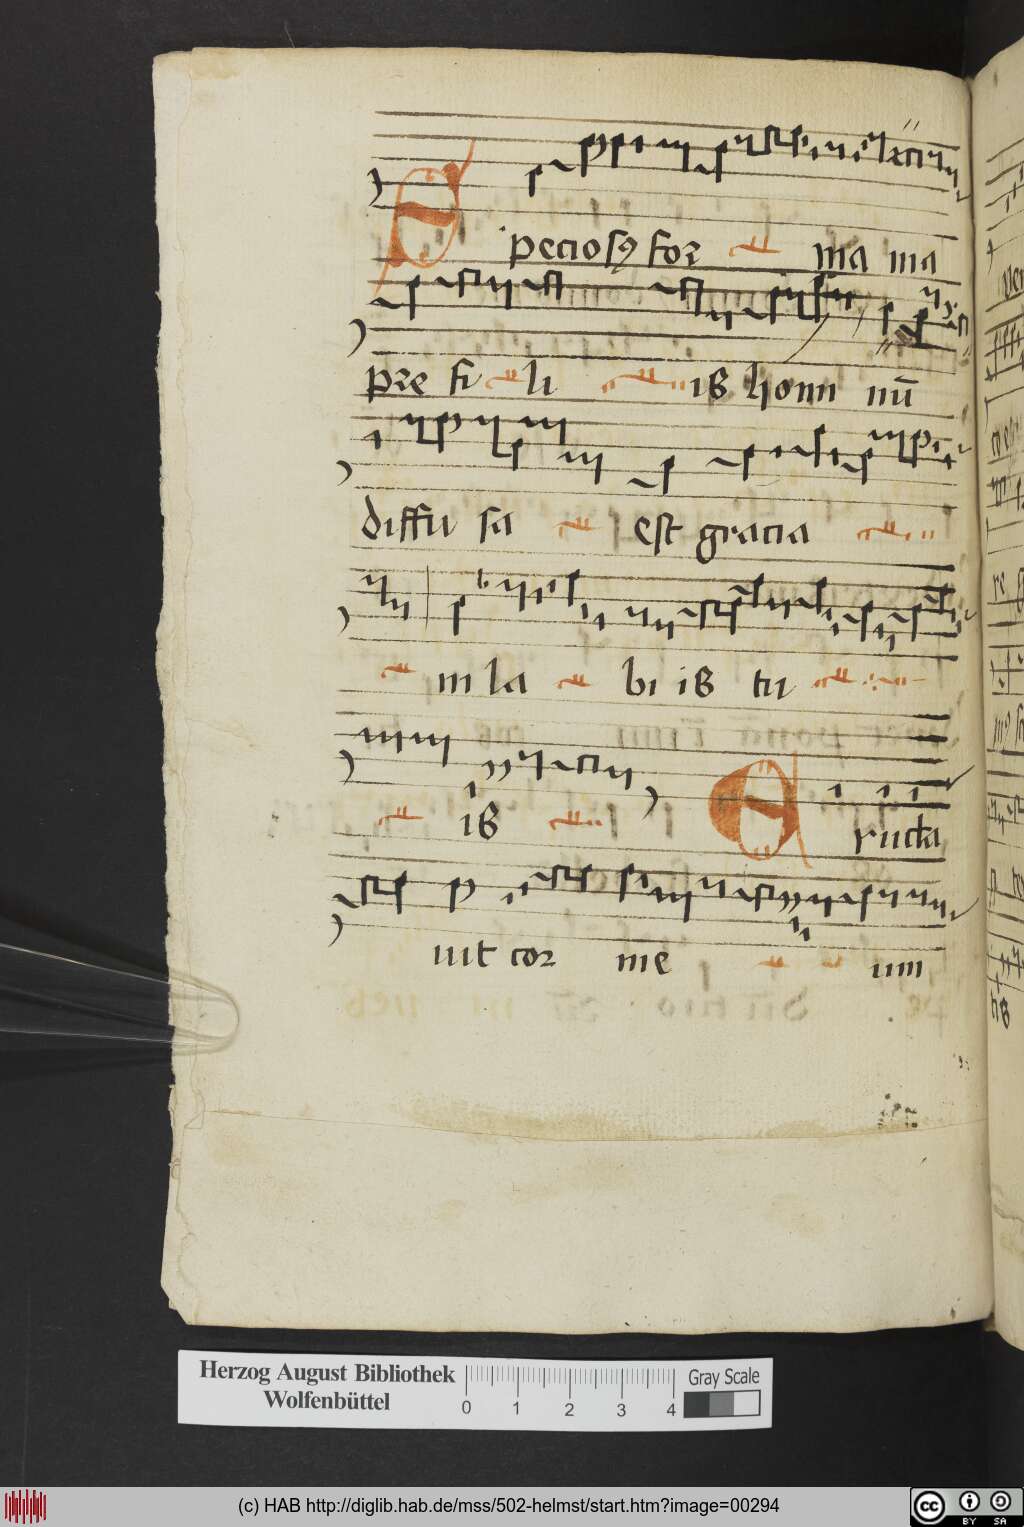 Speciosꝯ for ma ma
pre fi li iß homi nū
diffu sa est gracia
in la bi iß tu
iß Eructa
uit cor me um
Herzog August Bibliothek
Wolfenbüttel
0 1 2 3 4
Gray Scale
(c) HAB http://diglib.hab.de/mss/502-helmst/start.htm?image=00294
cc BY SA